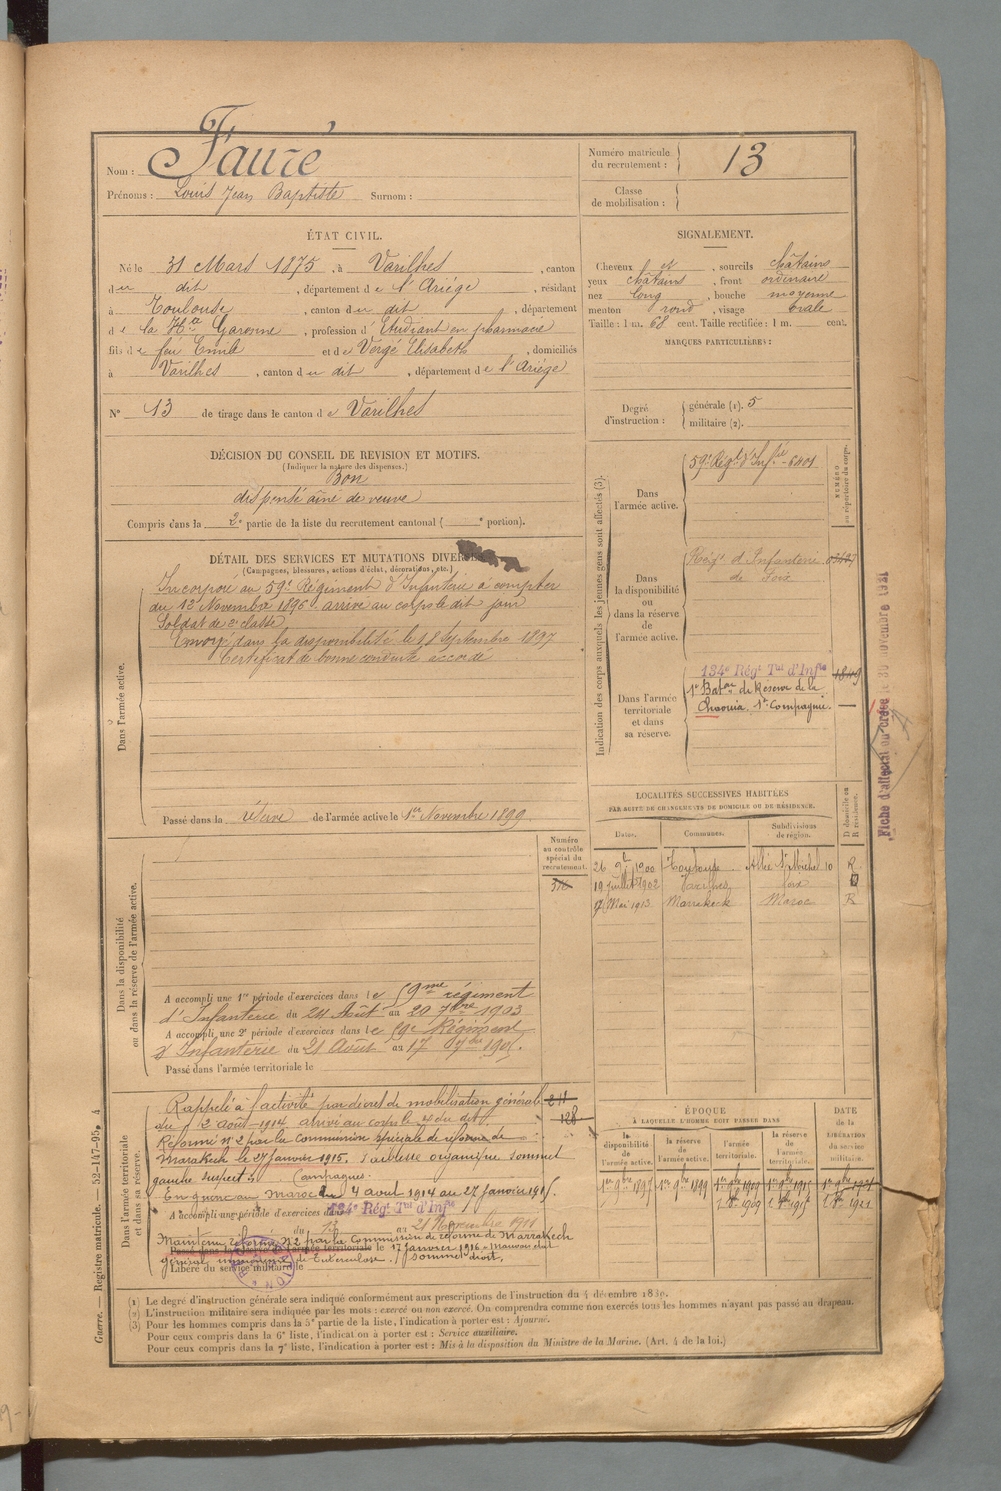 Nom : Fauré
Prénoms : Louis Jean Baptiste Surnom :
Numéro matricule du recrutement : 13
Classe de mobilisation :
ÉTAT CIVIL.
Né le 31 Mars 1875, à Varilhes, canton
du dit, département de l'Ariège, résidant
à Toulouse, canton du dit, département
de la Hte Garonne, profession d'Etudiant en pharmacie
fils de feu Emile et de Vergé Elisabeth, domiciliés
à Varilhes, canton du dit, département de l'Ariège
N° 13 de tirage dans le canton de Varilhes
SIGNALEMENT.
Cheveux et, sourcils châtains
yeux châtains, front ordinaire
nez long, bouche moyenne
menton rond, visage ovale
Taille : 1 m. 68 cent. Taille rectifiée : 1 m. cent.
MARQUES PARTICULIÈRES :
Degré d'instruction : générale (1). 5
militaire (2).
DÉCISION DU CONSEIL DE REVISION ET MOTIFS.
(Indiquer la nature des dispenses.)
Bon
dispensé aîné de veuve
Compris dans la 2e partie de la liste du recrutement cantonal ( e portion).
DÉTAIL DES SERVICES ET MUTATIONS DIVERSES
(Campagnes, blessures, actions d'éclat, décorations, etc.)
Dans l'armée active.
Incorporé au 59e Régiment d'Infanterie à compter
du 12 Novembre 1896 arrivé au corps le dit jour
Soldat de 2e classe.
Envoyé dans la disponibilité le 18 Septembre 1897
Certificat de bonne conduite accordé
Passé dans la réserve de l'armée active le 1er Novembre 1899
Indication des corps auxquels les jeunes gens sont affectés (3).
NUMÉRO au répertoire du corps.
Dans l'armée active.
59e Régt d'Infie 6401
Dans la disponibilité ou dans la réserve de l'armée active.
Régt d'Infanterie
de Foix
Dans l'armée territoriale et dans sa réserve.
134e Régt Tal d'Infie 1849
1er Baton de Réserve de la
Chaouia. 1e Compagnie.
Fiche d'affectat au ordre le 30 novembre 1931
LOCALITÉS SUCCESSIVES HABITÉES
PAR SUITE DE CHANGEMENTS DE DOMICILE OU DE RÉSIDENCE.
Dates. Communes. Subdivisions de région. D domicile ou R résidence.
26 9bre 1900 Toulouse Allée St Michel 10 R
19 juillet 1902 Varilhes Foix D
9 Mai 1913 Marrakeck Maroc R
Dans la disponibilité ou dans la réserve de l'armée active.
Numéro au contrôle spécial du recrutement.
316
A accompli une 1re période d'exercices dans le 59me régiment
d'Infanterie du 24 Août au 20 7bre 1903
A accompli une 2e période d'exercices dans le 59e Régiment
d'Infanterie du 21 Août au 17 7bre
Passé dans l'armée territoriale le
Dans l'armée territoriale et dans sa réserve.
Rappelé à l'activité par décret de mobilisation générale 211
du 2 août 1914 arrivé au corps le 4 du dit. 128
Réformé n° 2 par la commission spéciale de réforme de
Marakech le 27 janvier 1915. Faiblesse organique sommet
gauche suspect. Campagnes.
En guerre au Maroc du 4 août 1914 au 27 janvier 1915.
A accompli une période d'exercices dans le 134e Régt Tal d'Infie
du 13 au 21 Novembre 1911
Maintenu réformé N° 2 par la Commission de réforme de Marrakech
Passé dans la réserve de l'armée territoriale le 17 janvier 1916 - Mauvais état
général, de tuberculose sommet droit.
Libéré du service militaire le
ÉPOQUE
À LAQUELLE L'HOMME DOIT PASSER DANS
la disponibilité de l'armée active. la réserve de l'armée active. l'armée territoriale. la réserve de l'armée territoriale.
DATE DE LA LIBÉRATION du service militaire.
1er 9bre 1897 1er 9bre 1899 1er 9bre 1909 1er 9bre 1915 1er 9bre 1921
1er 8bre 1909 1er 8bre 1915 1er 8bre 1921
(1) Le degré d'instruction générale sera indiqué conformément aux prescriptions de l'instruction du 4 décembre 1889.
(2) L'instruction militaire sera indiquée par les mots : exercé ou non exercé. On comprendra comme non exercés tous les hommes n'ayant pas passé au drapeau.
(3) Pour les hommes compris dans la 5e partie de la liste, l'indication à porter est : Ajourné.
Pour ceux compris dans la 6e liste, l'indication à porter est : Service auxiliaire.
Pour ceux compris dans la 7e liste, l'indication à porter est : Mis à la disposition du Ministre de la Marine. (Art. 4 de la loi.)
Guerre. — Registre matricule. 52-147-95. 4